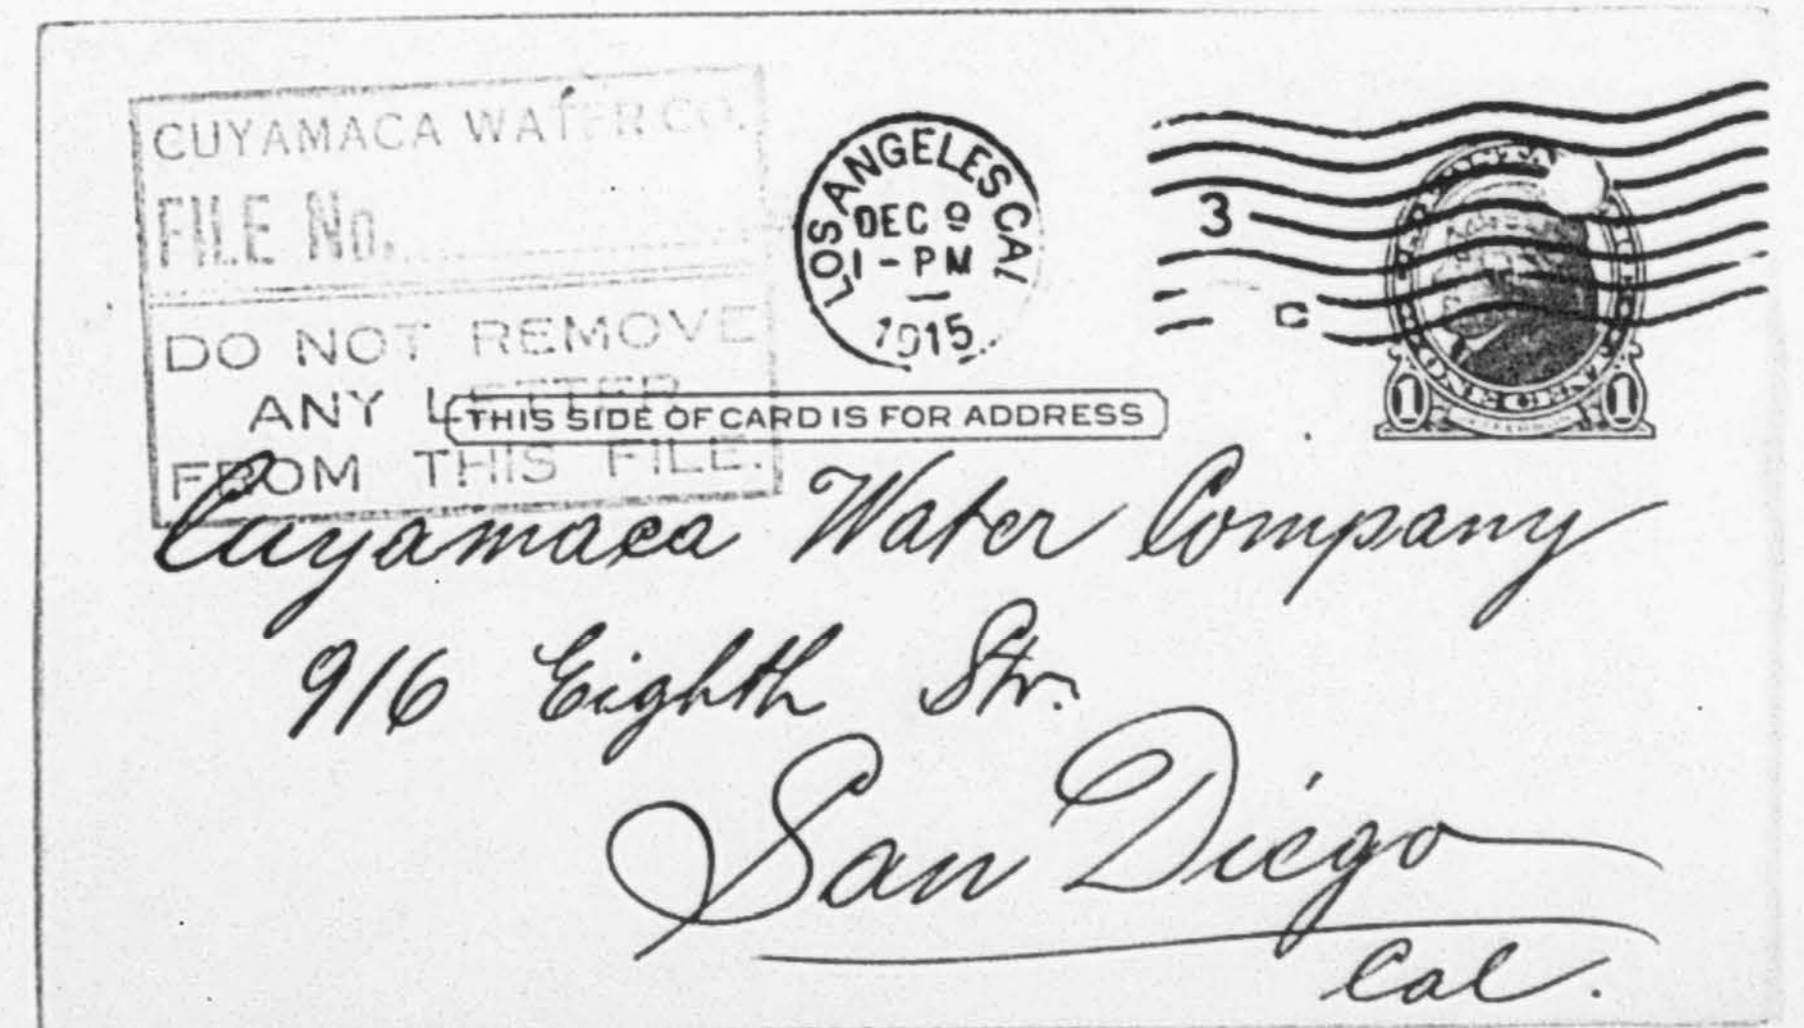 CUYAMACA WATER CO.
FILE No.
DO NOT REMOVE
ANY LETTER
FROM THIS FILE.
LOS ANGELES CAL
DEC 9
1-PM
1915
3
C
1 ONE CENT 1
THIS SIDE OF CARD IS FOR ADDRESS
Cuyamaca Water Company
916 Eighth Str.
San Diego
Cal.